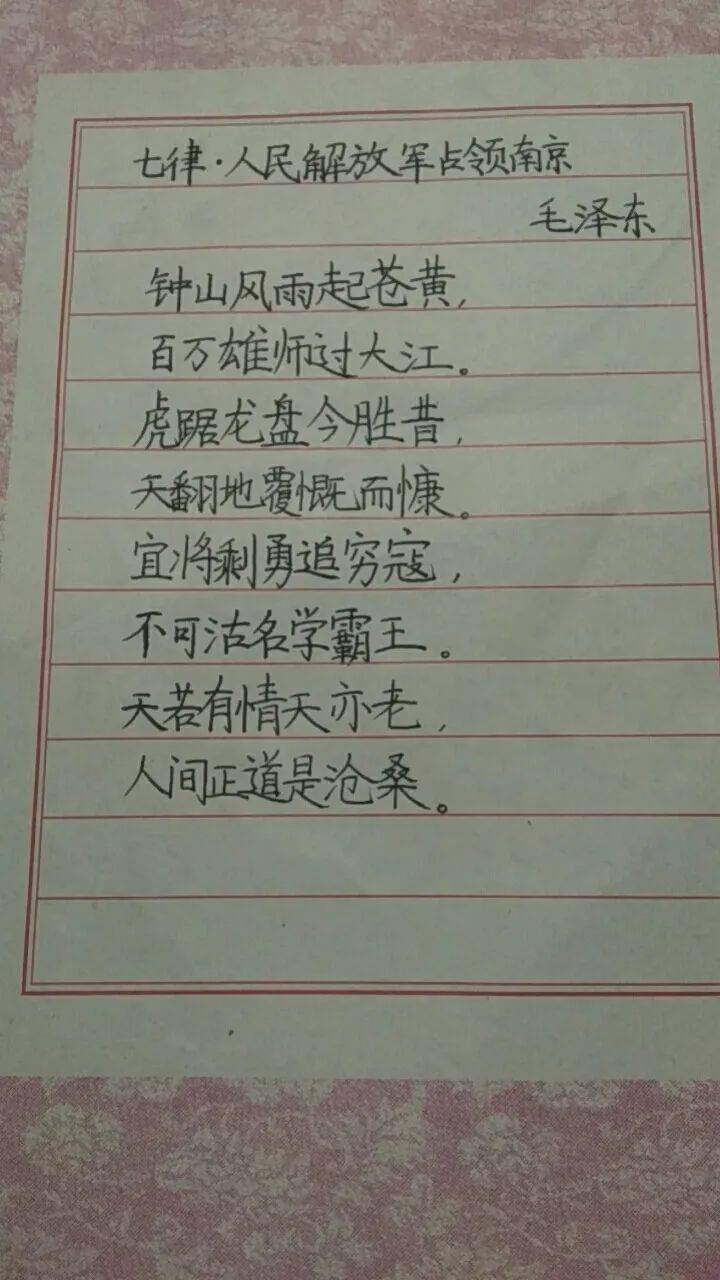 七律·人民解放军占领南京
毛泽东
钟山风雨起苍黄,
百万雄师过大江。
虎踞龙盘今胜昔,
天翻地覆慨而慷。
宜将剩勇追穷寇,
不可沽名学霸王。
天若有情天亦老,
人间正道是沧桑。